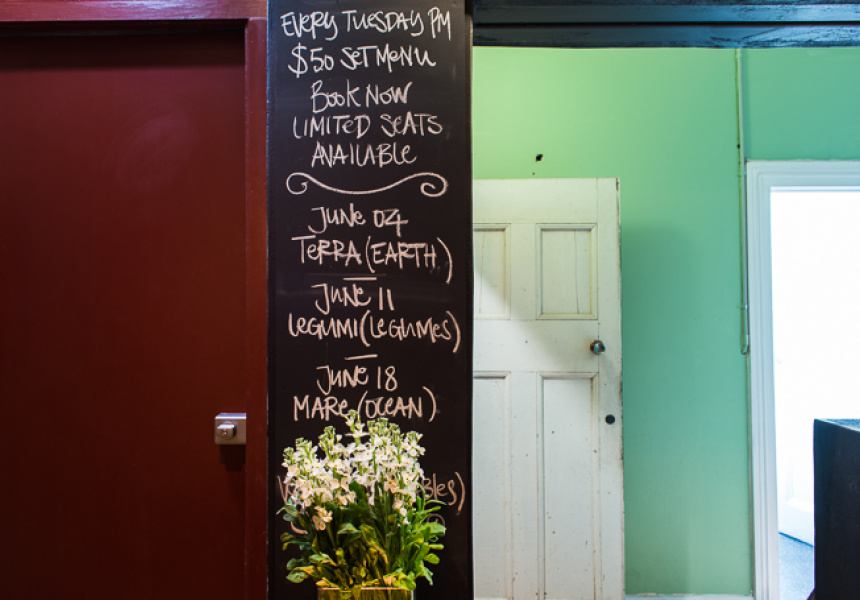 EVERY TUESDAY PM
$50 SET MENU
BOOK NOW
LIMITED SEATS
AVAILABLE
JUNE 04
TERRA (EARTH)
JUNE 11
LEGUMI (LEGUMES)
JUNE 18
MARE (OCEAN)